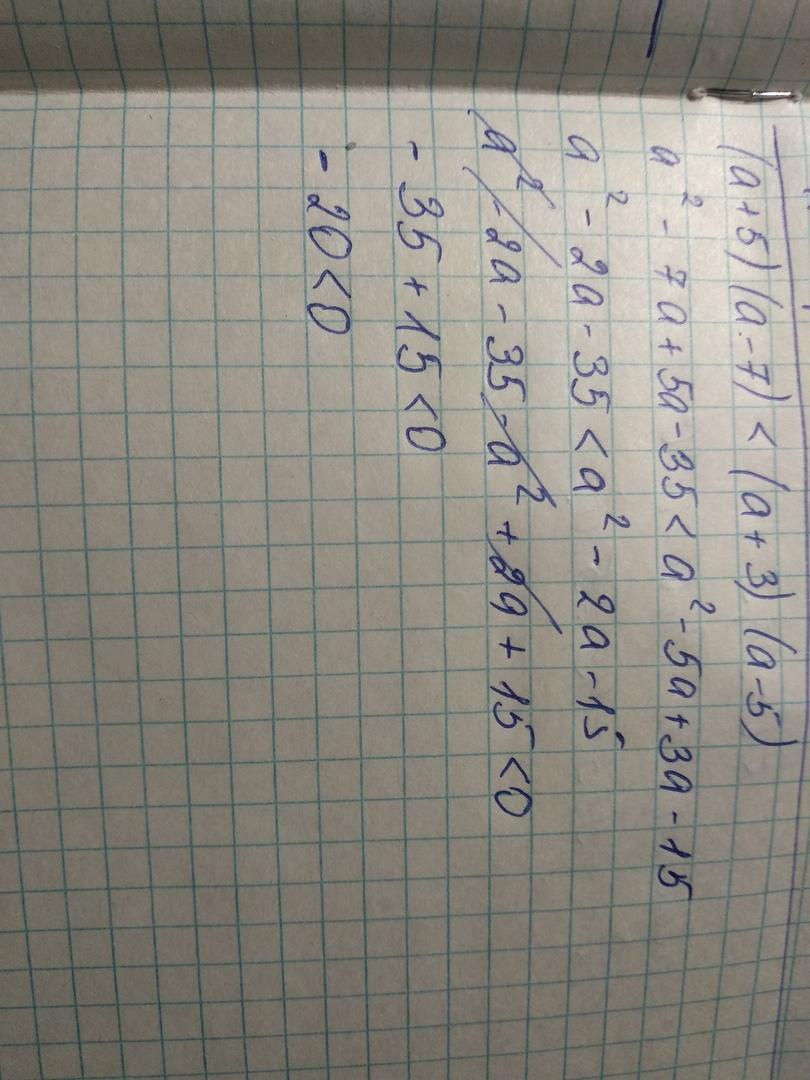 (a+5)(a-7)<(a+3)(a-5)
a²-7a+5a-35<a²-5a+3a-15
a²-2a-35<a²-2a-15
a²-2a-35-a²+2a+15<0
-35+15<0
-20<0